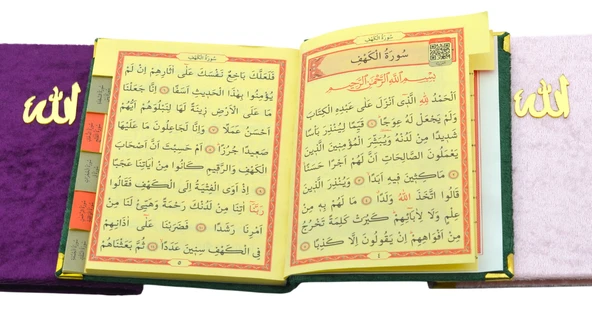 سُورَةُ الْكَهْفِ
سُورَةُ الْكَهْفِ
بِسْمِ اللّٰهِ الرَّحْمٰنِ الرَّحِيمِ
اَلْحَمْدُ لِلّٰهِ الَّذِى اَنْزَلَ عَلٰى عَبْدِهِ الْكِتَابَ
وَلَمْ يَجْعَلْ لَهُ عِوَجًا قَيِّمًا لِيُنْذِرَ بَأْسًا
شَدِيدًا مِنْ لَدُنْهُ وَيُبَشِّرَ الْمُؤْمِنِينَ الَّذِينَ
يَعْمَلُونَ الصَّالِحَاتِ اَنَّ لَهُمْ اَجْرًا حَسَنًا
مَاكِثِينَ فِيهِ اَبَدًا وَيُنْذِرَ الَّذِينَ
قَالُوا اتَّخَذَ اللّٰهُ وَلَدًا مَا لَهُمْ بِهِ مِنْ
عِلْمٍ وَلَا لِاٰبَائِهِمْ كَبُرَتْ كَلِمَةً تَخْرُجُ
مِنْ اَفْوَاهِهِمْ اِنْ يَقُولُونَ اِلَّا كَذِبًا
٤
سُورَةُ الْكَهْفِ
فَلَعَلَّكَ بَاخِعٌ نَفْسَكَ عَلٰى اٰثَارِهِمْ اِنْ لَمْ
يُؤْمِنُوا بِهٰذَا الْحَدِيثِ اَسَفًا اِنَّا جَعَلْنَا
مَا عَلَى الْاَرْضِ زِينَةً لَهَا لِنَبْلُوَهُمْ اَيُّهُمْ
اَحْسَنُ عَمَلًا وَاِنَّا لَجَاعِلُونَ مَا عَلَيْهَا
صَعِيدًا جُرُزًا اَمْ حَسِبْتَ اَنَّ اَصْحَابَ
الْكَهْفِ وَالرَّقِيمِ كَانُوا مِنْ اٰيَاتِنَا عَجَبًا
اِذْ اَوَى الْفِتْيَةُ اِلَى الْكَهْفِ فَقَالُوا
رَبَّنَا اٰتِنَا مِنْ لَدُنْكَ رَحْمَةً وَهَيِّئْ لَنَا مِنْ
اَمْرِنَا رَشَدًا فَضَرَبْنَا عَلٰى اٰذَانِهِمْ
فِى الْكَهْفِ سِنِينَ عَدَدًا ثُمَّ بَعَثْنَاهُمْ
٥
الله
الله